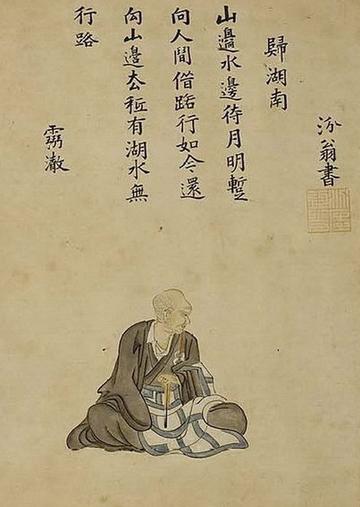 汾翁書
歸湖南
山邊水邊待月明蹔
向人間借路行如今還
向山邊去秖有湖水無
行路
靈澈